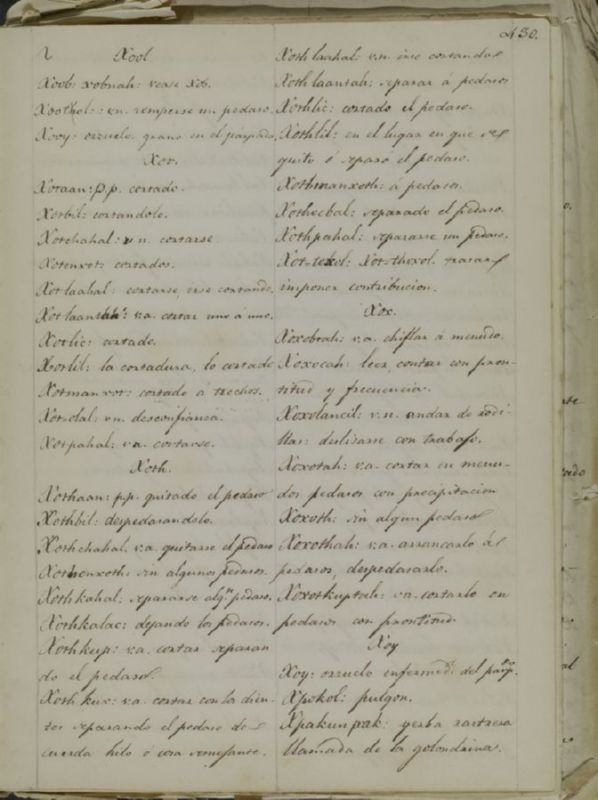 430.
Xool
Xoob: xobnah: vease Xob.
Xoothol: vn. romperse un pedazo.
Xooy: orzuelo, grano en el parpado.
Xot.
Xotaan: p.p. cortado.
Xotbil: cortandolo.
Xotchahal: vn. cortarse.
Xotenxot: cortados.
Xotlaahal: cortarse, irse cortando.
Xotlaantah: va. cortar uno á uno.
Xotlic: cortado.
Xotlil: la cortadura, lo cortado
Xotmanxot: cortado á trechos.
Xot-olal: vn. desconfianza.
Xotpahal: va. cortarse.
Xoth.
Xothaan: pp. quitado el pedazo
Xothbil: despedazandolo.
Xothchahal. va. quitarse el pedazo
Xothenxoth: sin algunos pedazos.
Xothkahal: separarse algn pedazo.
Xothkalac: dejando los pedazos.
Xothkup: va. cortar separan
do el pedazo.
Xoth kux: va. cortar con los dien-
tes separando el pedazo de
cuerda hilo ó cosa semejante.
Xothlaahal: vn. irse cortando
Xothlaantah: separar á pedazos
Xothlic: cortado el pedazo.
Xothlil: en el lugar en que se
quitó ó separó el pedazo.
Xothmanxoth: á pedazos.
Xothocbal: separado el pedazo.
Xothpahal: separarse un pedazo.
Xot-texol: Xot-thoxol. trazar
imponer contribucion.
Xox.
Xoxobtah: va. chiflar á menudo.
Xoxocah: leer, contar con pron-
titud y frecuencia.
Xoxolancil: vn. andar de rodi-
llas: deslizarse con trabajo.
Xoxotah: va. cortar en menu-
dos pedazos con precipitacion
Xoxoth: sin algun pedazo
Xoxothah: va. arrancarlo á
pedazos, despedazarlo.
Xoxothkuptah: va. cortarlo en
pedazos con prontitud.
Xoy
Xoy: orzuelo enfermed. del parp.do
Xpokol: pulgon.
Xpakunpak: yerba rastrera
llamada de la golondrina.